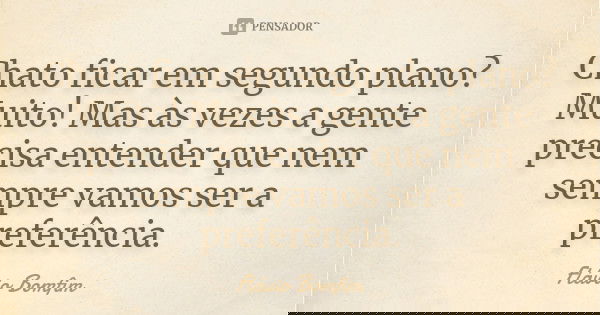 PENSADOR
Chato ficar em segundo plano?
Muito! Mas às vezes a gente
precisa entender que nem
sempre vamos ser a
preferência.
Flávio Bomfim